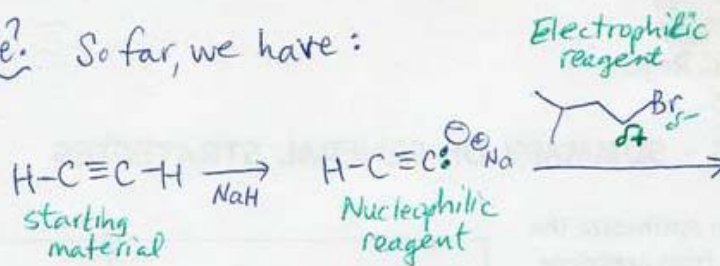 e? So far, we have:
Electrophilic
reagent
Br
δ-
δ+
H-C≡C-H
NaH
H-C≡C:⊖ ⊕Na
starting
material
Nucleophilic
reagent